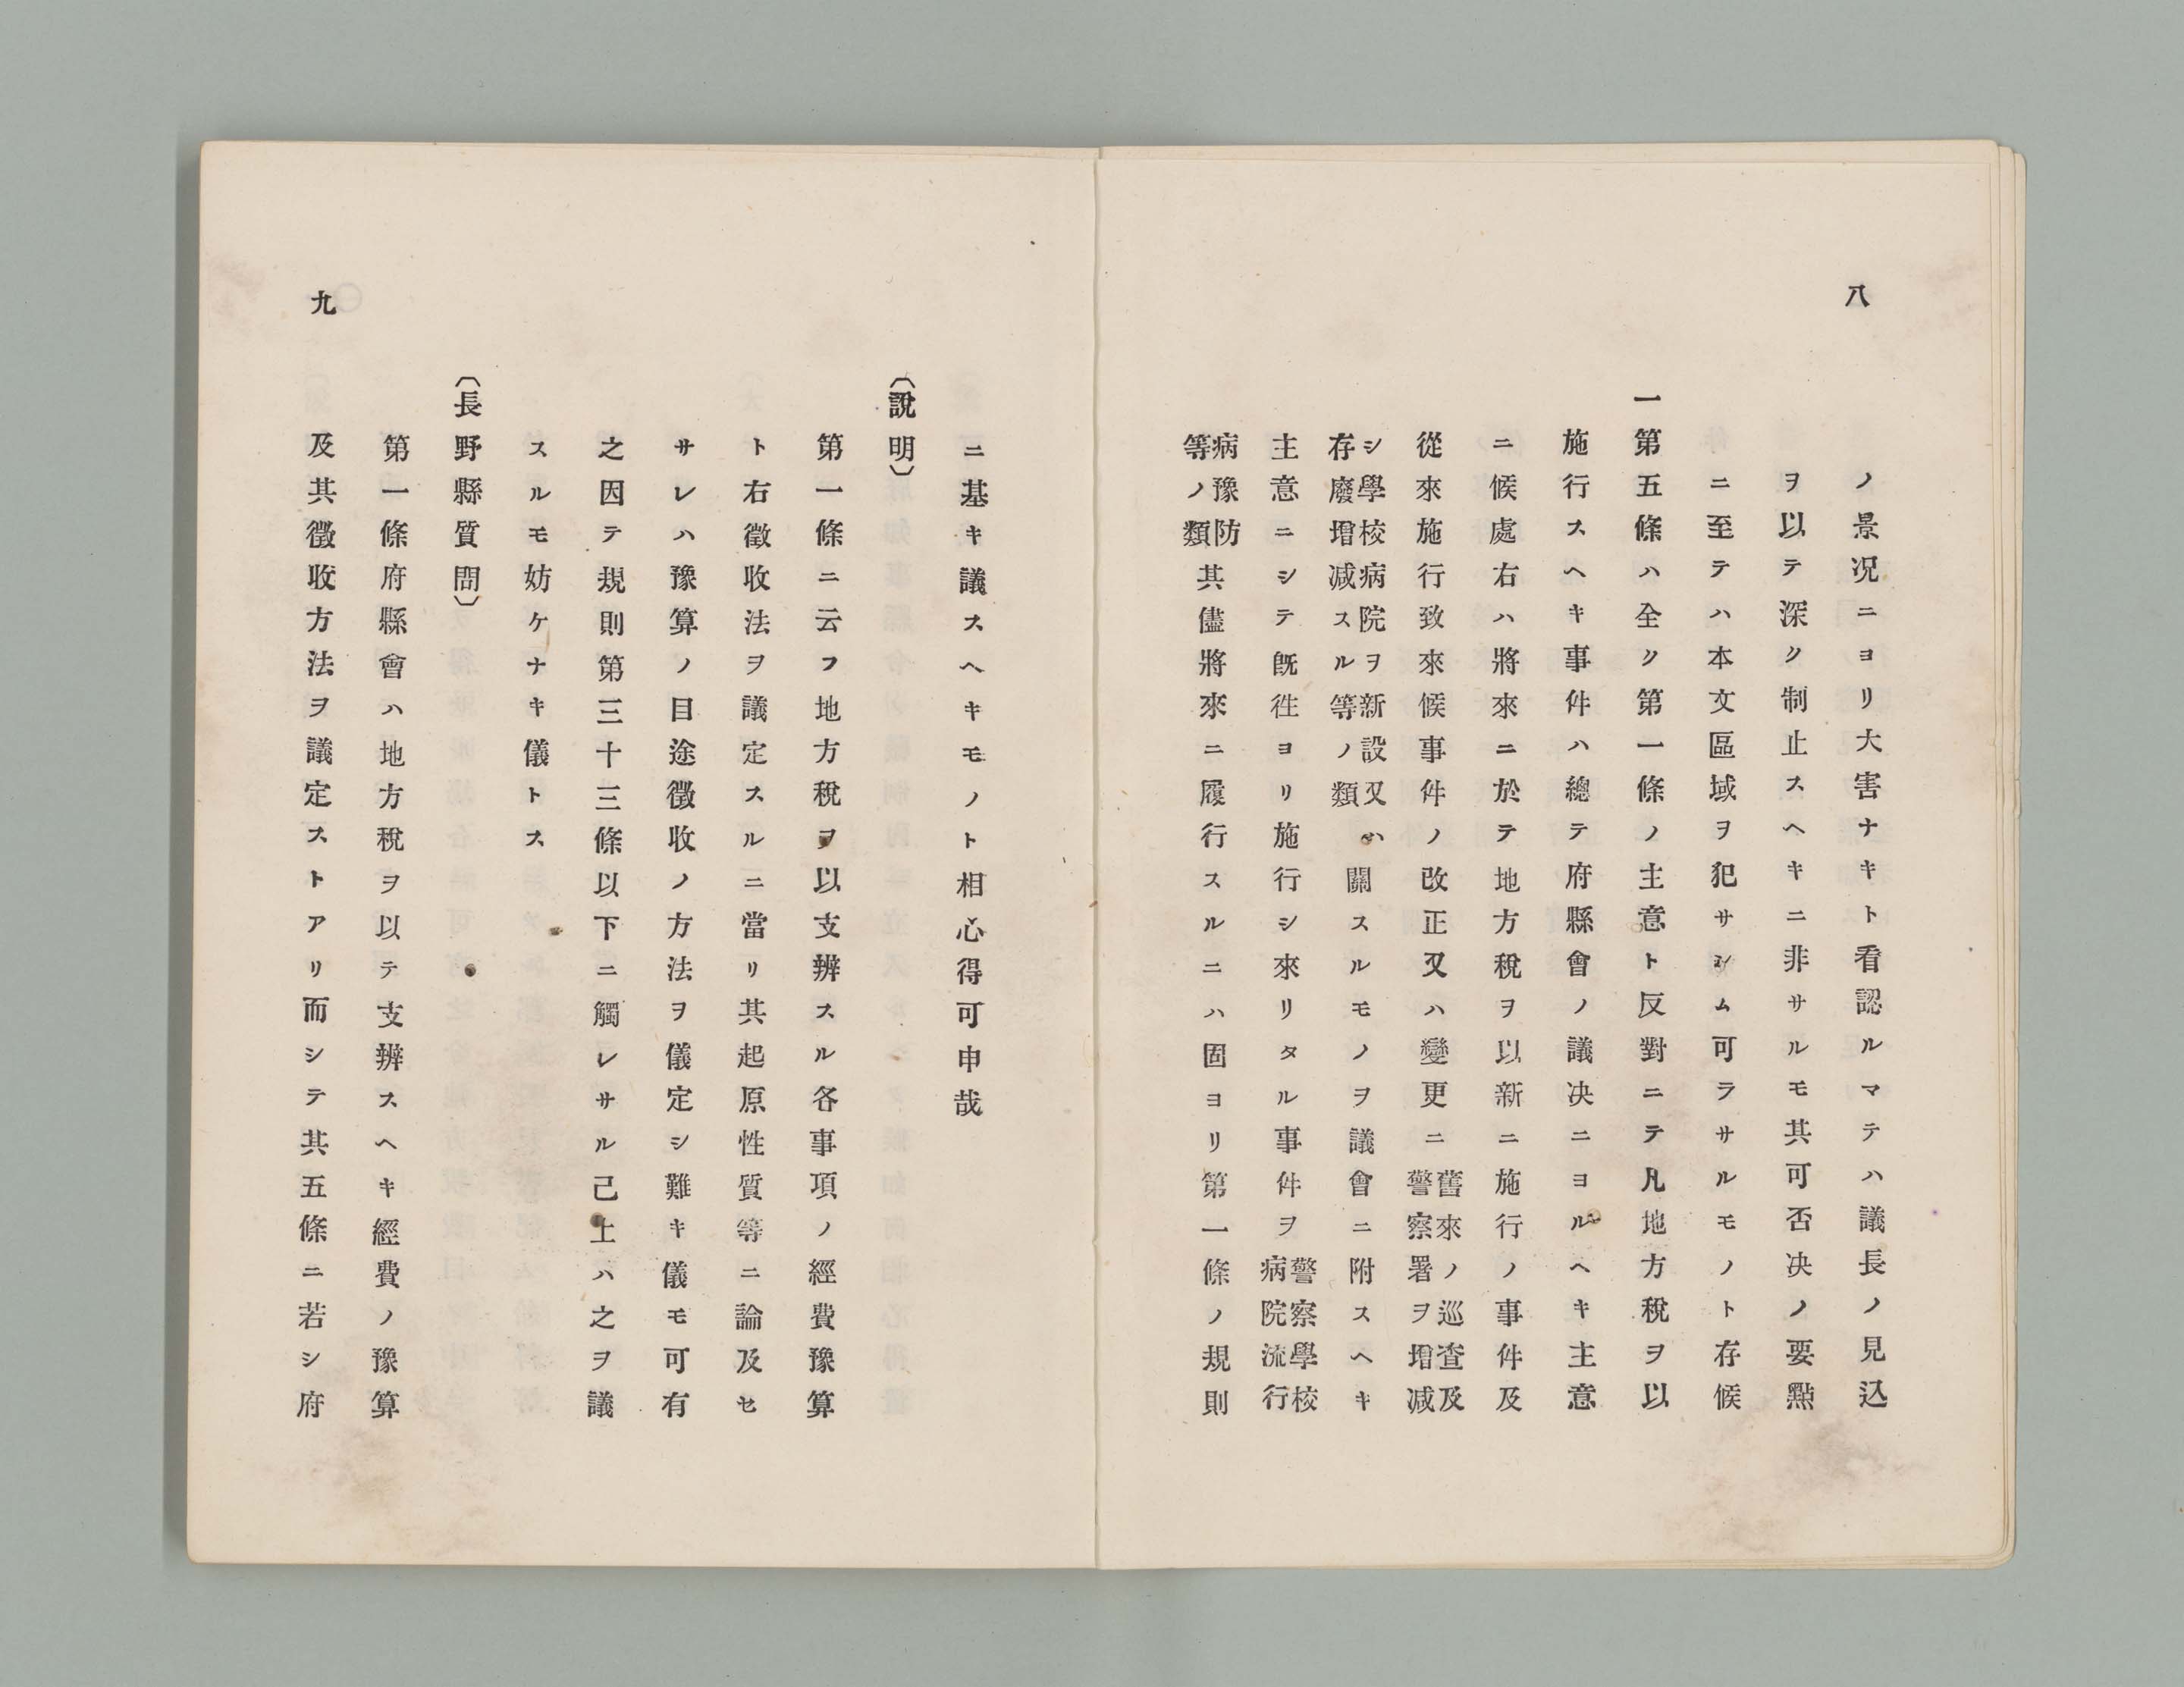 八
ノ景况ニヨリ大害ナキト看認ルマテハ議長ノ見込
ヲ以テ深ク制止スヘキニ非サルモ其可否决ノ要㸃
ニ至テハ本文區域ヲ犯サシム可ラサルモノト存候
一第五條ハ全ク第一條ノ主意ト反對ニテ凡地方稅ヲ以
施行スヘキ事件ハ總テ府縣會ノ議决ニヨルヘキ主意
ニ候處右ハ將來ニ於テ地方稅ヲ以新ニ施行ノ事件及
從來施行致來候事件ノ改正又ハ變更ニ舊來ノ巡査及警察署ヲ增减
シ學校病院ヲ新設又ハ存廢增减スル等ノ類關スルモノヲ議會ニ附スヘキ
主意ニシテ旣徃ヨリ施行シ來リタル事件ヲ警察學校病院流行
病豫防等ノ類其儘將來ニ履行スルニハ固ヨリ第一條ノ規則
九
ニ基キ議スヘキモノト相心得可申哉
〔說明〕
第一條ニ云フ地方稅ヲ以支辨スル各事項ノ經費豫算
ト右徵收法ヲ議定スルニ當リ其起原性質等ニ論及セ
サレハ豫算ノ目途徵收ノ方法ヲ儀定シ難キ儀モ可有
之因テ規則第三十三條以下ニ觸レサル己上ハ之ヲ議
スルモ妨ケナキ儀トス
〔長野縣質問〕
第一條府縣會ハ地方稅ヲ以テ支辨スヘキ經費ノ豫算
及其徵收方法ヲ議定ストアリ而シテ其五條ニ若シ府